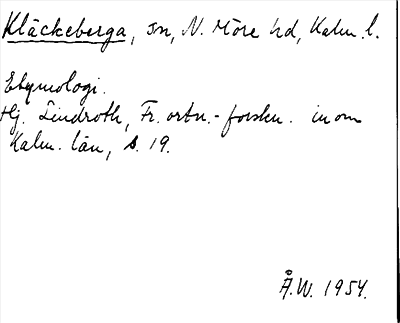 Kläckeberga, sn, N. Möre hd, Kalm. l.
Etymologi.
Hj. Lindroth, Fr. ortn.-forskn. inom
Kalm. län, s. 19.
Å.W. 1954.